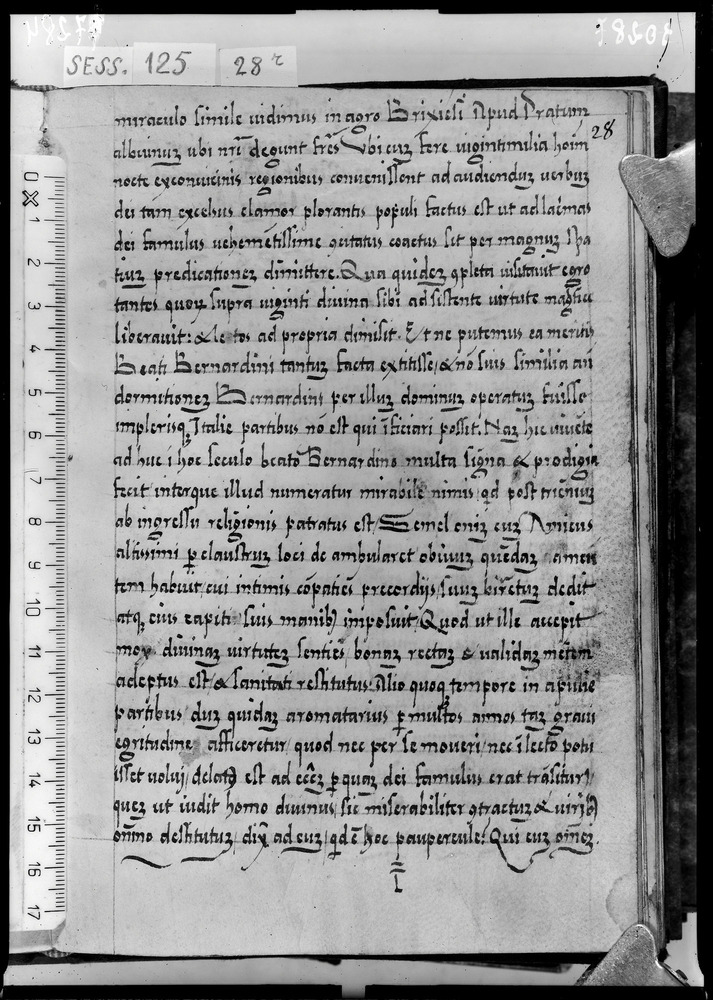 SESS. 125 28r
28
miraculo simile uidimus in agro Brixiẽsi Apud Pratum
albuinuȝ ubi nr̃i degunt fr̃es Vbi cuȝ fere uigintimilia hoĩm
nocte exconuicinis regionibus conuenissent ad audienduȝ uerbuȝ
dei tam excelsus clamor plorantis populi factus est ut ad lacr̃mas
dei famulus uehemẽtissime ꝯcitatus coactus sit per magnuȝ spa
tiuȝ predicationeȝ dimittere. Qua quideȝ ꝯpleta uisitauit egro
tantes quoꝝ supra uiginti diuina sibi adsistente uirtute
liberauit: & le tos ad propria dimisit. Et ne putemus ea meritis
Beati Bernardini tantuȝ facta extitisse / & nõ suis similia añ
dormitioneȝ Bernardini per illuȝ dominuȝ operatuȝ fuisse
implerisqȝ Italie partibus no est qui ĩficiari possit. Naȝ hic uiuẽte
ad huc ĩ hoc seculo beato Bernardino multa signa & prodigia
fecit interque illud numeratur mirabile nimis qd post trieñiuȝ
ab ingressu religionis patratus est / Semel eniȝ cuȝ Amicus
altissimi ꝑ claustruȝ loci de ambularet obiuuȝ quẽdaȝ amen
tem habuit cui intimis cõpatiẽs precordijs / suuȝ biretuȝ dedit
atqȝ eius capiti suis manibȝ imposuit / Quod ut ille accepit
mox diuinaȝ uirtuteȝ sentiẽs / bonaȝ rectaȝ & ualidaȝ mẽtem
adeptus est & sanitati restitutus. Alio quoqȝ tempore in apulie
partibus / duȝ quidaȝ aromatarius ꝑ multos annos taȝ graui
egritudine afficeretur / quod nec per se moueri / nec ĩ lecto potu
isset uolui / delatꝯ est ad ecc̃eȝ ꝑ quaȝ dei famulus erat trãsiturꝯ /
queȝ ut iudit homo diuinus / sic miserabiliter ꝯtractuȝ & uiribȝ
om̃ino destituтuȝ / dix̃ ad euȝ / qd ẽ hoc paupercule? Qui cuȝ om̃eȝ.